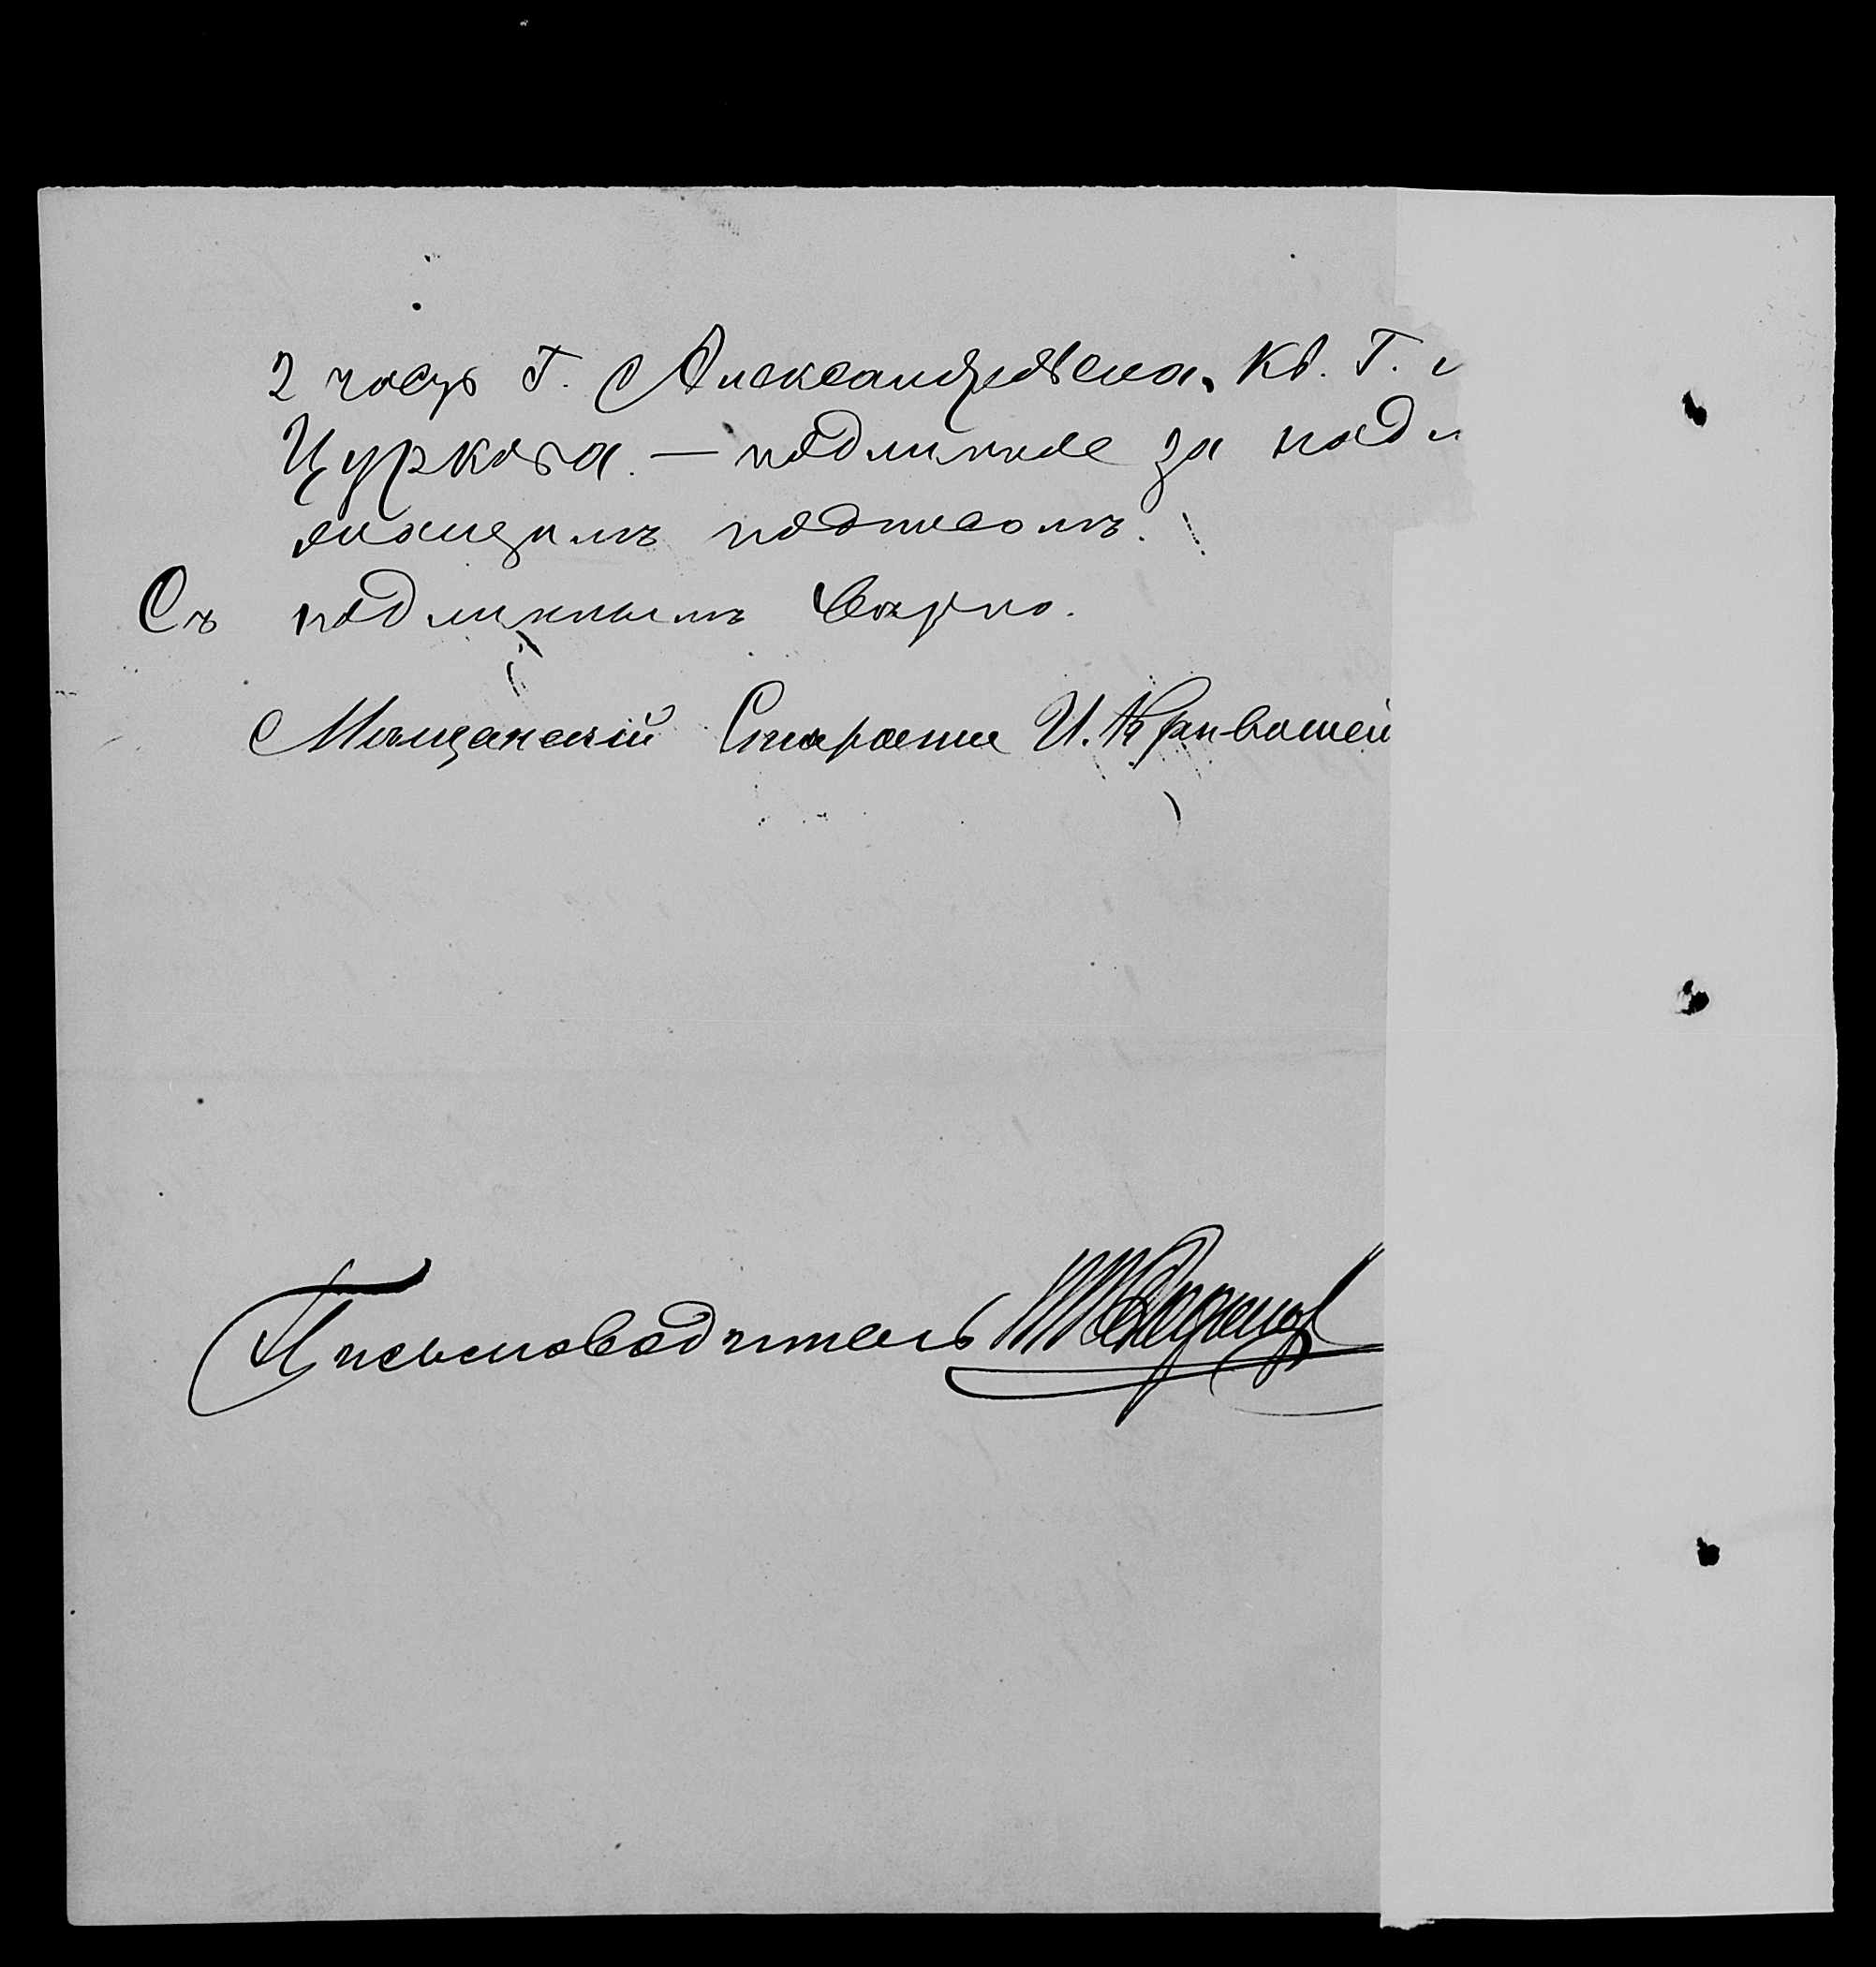 2 часть Г. Александровска. Кв. Г.
Цуркова. — подлинное за над
лежащимъ подписомъ.
Съ подлиннымъ вѣрно.
Мѣщанскій Староста И. Кривошей
Письмоводитель